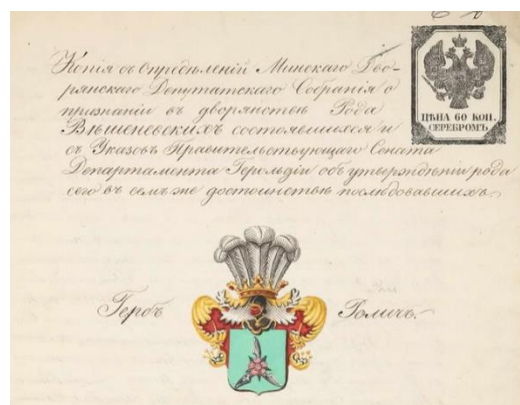 Копія съ Опредѣленій Минскаго Дво-
рянскаго Депутатскаго Собранія о
признаніи въ дворянствѣ Рода
Вѣшеневскихъ состоявшихся и
съ Указовъ Правительствующаго Сената
Департамента Герольдіи объ утвержденіи рода
сего въ семъ же достоинствѣ послѣдовавшихъ.
ЦѢНА 60 КОП.
СЕРЕБРОМЪ
Гербъ
Роличъ.